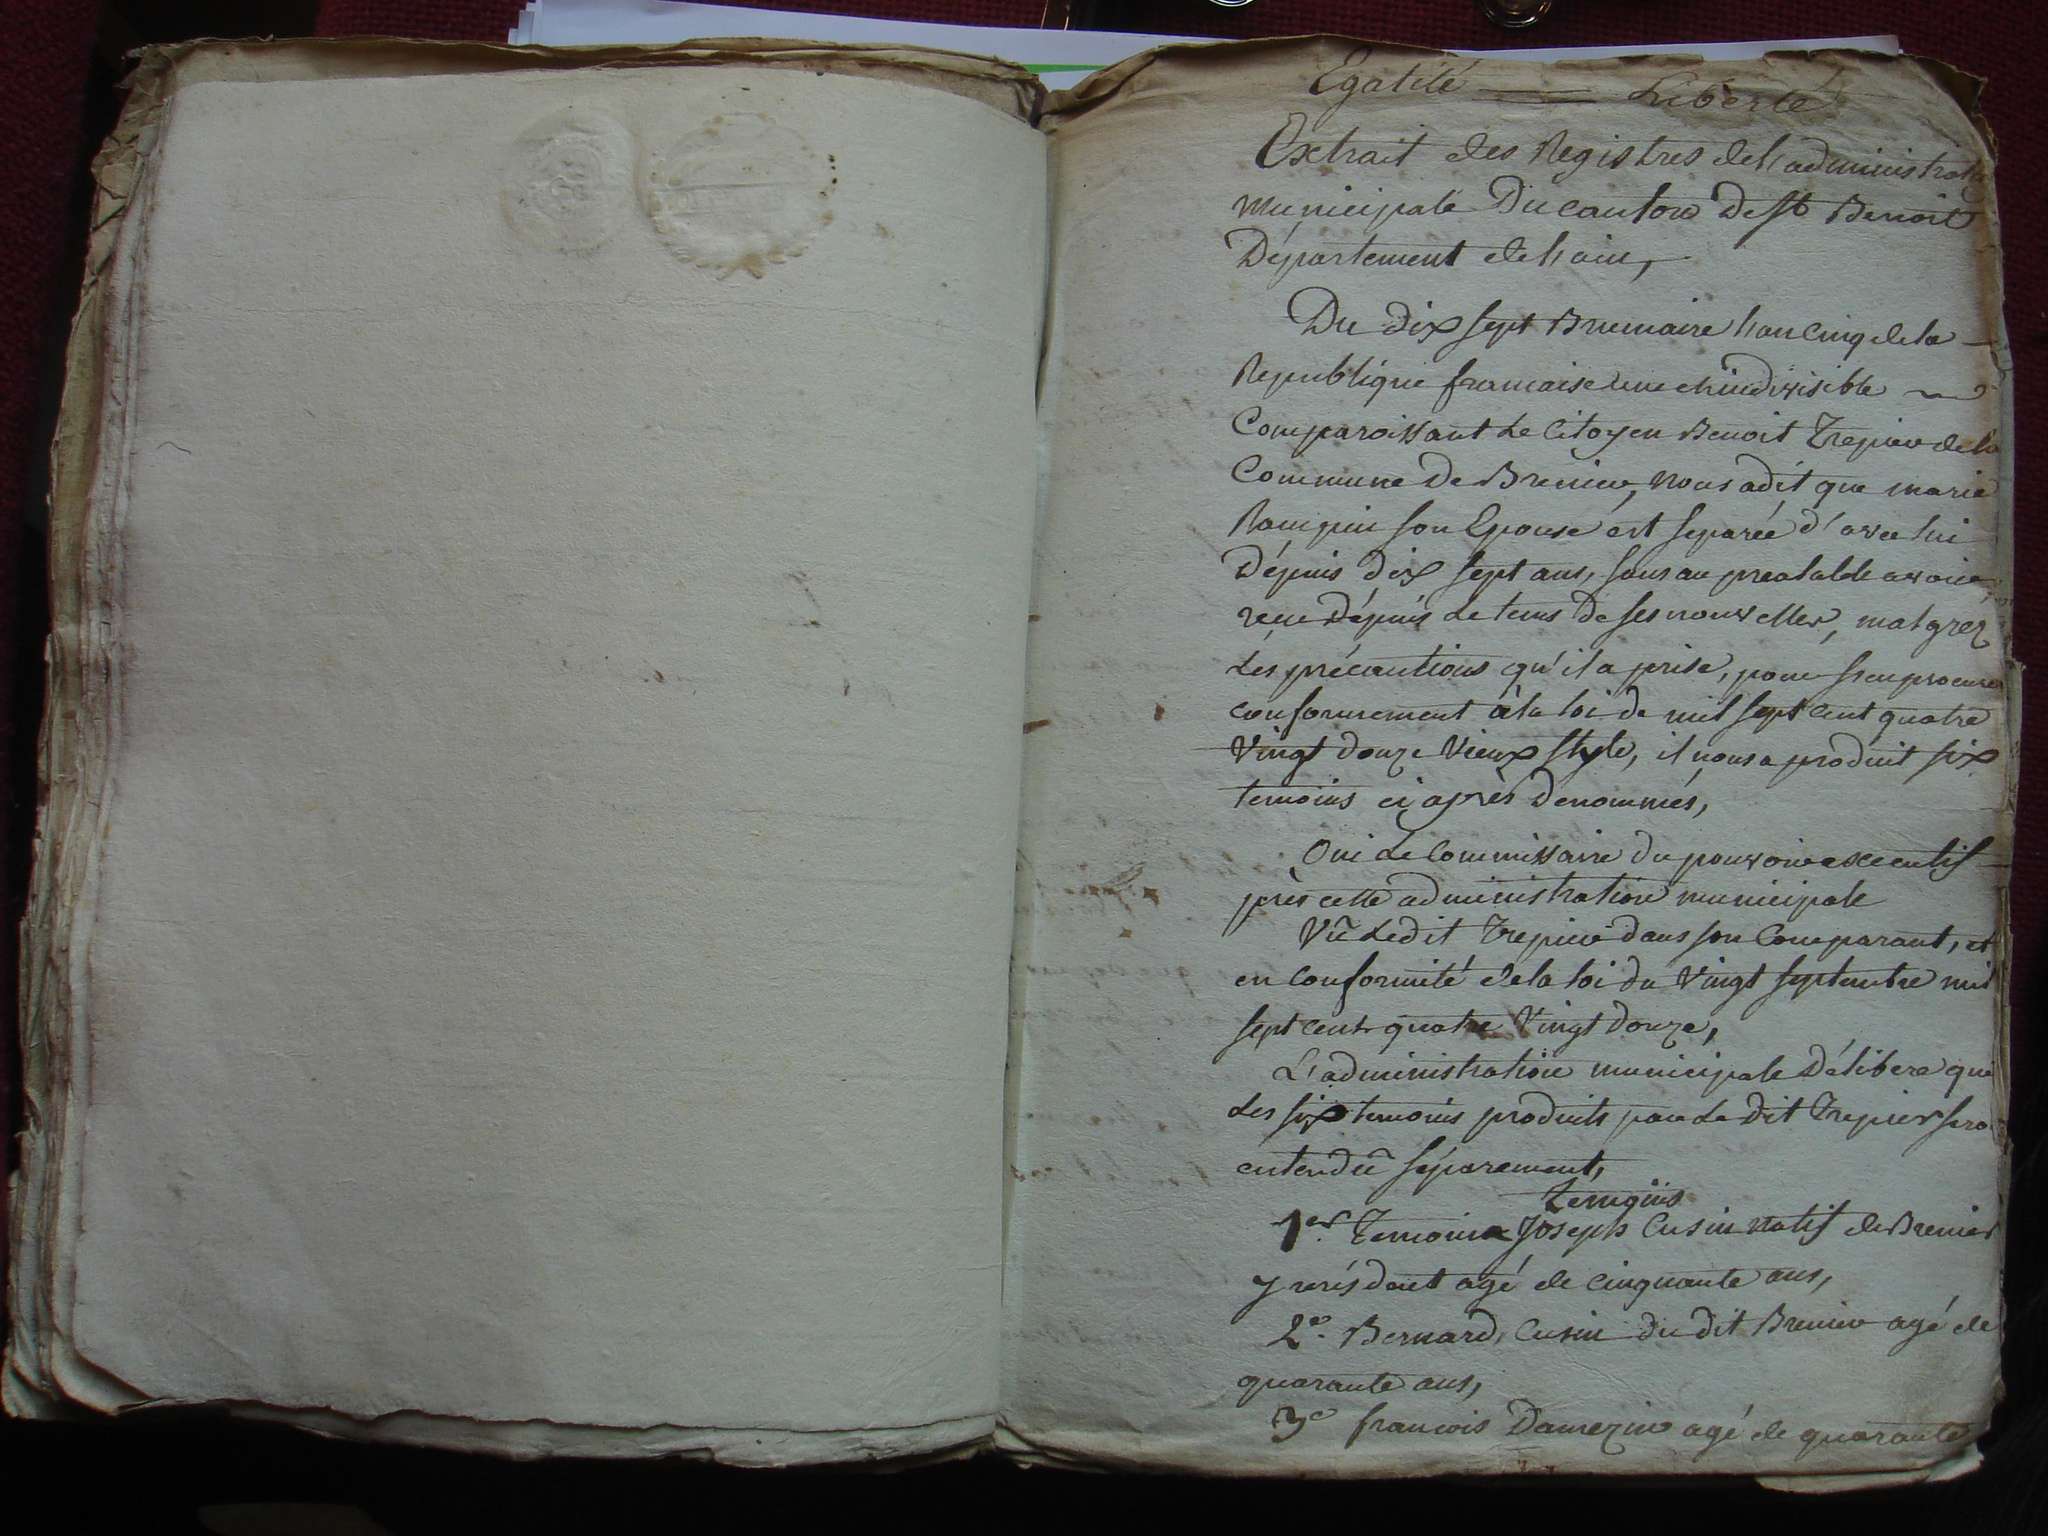 Egalité Liberté
Extrait des Registres de l'administrat
municipale Du canton De st Benoit
Département de l'ain,
Du dix sept Brumaire l'an Cinq de la
Republique francaise une et indivisible
Comparoissant Le Citoyen Benoit Trepier de la
Commune De Brenier, nous a dit que marie
son Epouse est separée d'avec lui
Dépuis dix sept ans, sans au prealable avoir
reçue Dépuis Le tems De ses nouvelles, malgrez
Les précautions qu'il a prise, pour s'en procurer
conformement à la loi de mil sept cent quatre
Vingt douze Vieux Style, il nous a produit six
temoins ci après Denommés,
Oui Le Commissaire du pouvoir executif
près cette administration municipale
Vû Ledit Trepier dans son Comparant, et
en Conformité de la loi du Vingt septembre mil
sept cent quatre Vingt Douze,
L'administration municipale Délibere que
Les six temoins produits par Le Dit Trepier sero
entendû séparement,
Temoins
1er. Temoin Joseph Cusin natif de Brenier
y résident agé de cinquante ans,
2e. Bernard Cusin du dit Brenier agé de
quarante ans,
3e francois Damezin agé de quarante